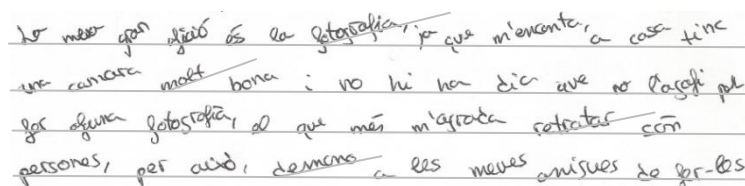 La meva gran afició és la fotografia, ja que m'encanta, a casa tinc
una camara molt bona i no hi ha dia que no l'agafi per
fer alguna fotografia, el que més m'agrada retratar són
persones, per això, demano a les meves amigues de fer-les